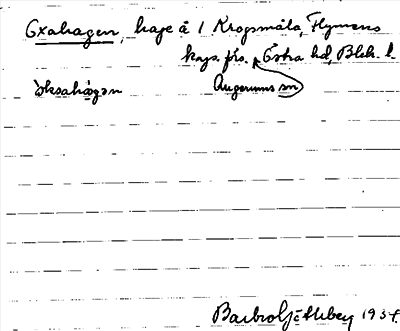 Oxahagen, hage å 1 Krogsmåla, Flymens
kaps. förs. Östra hd, Blek. l.
òksahagən Augerums sn
Barbro Götlibey 1934